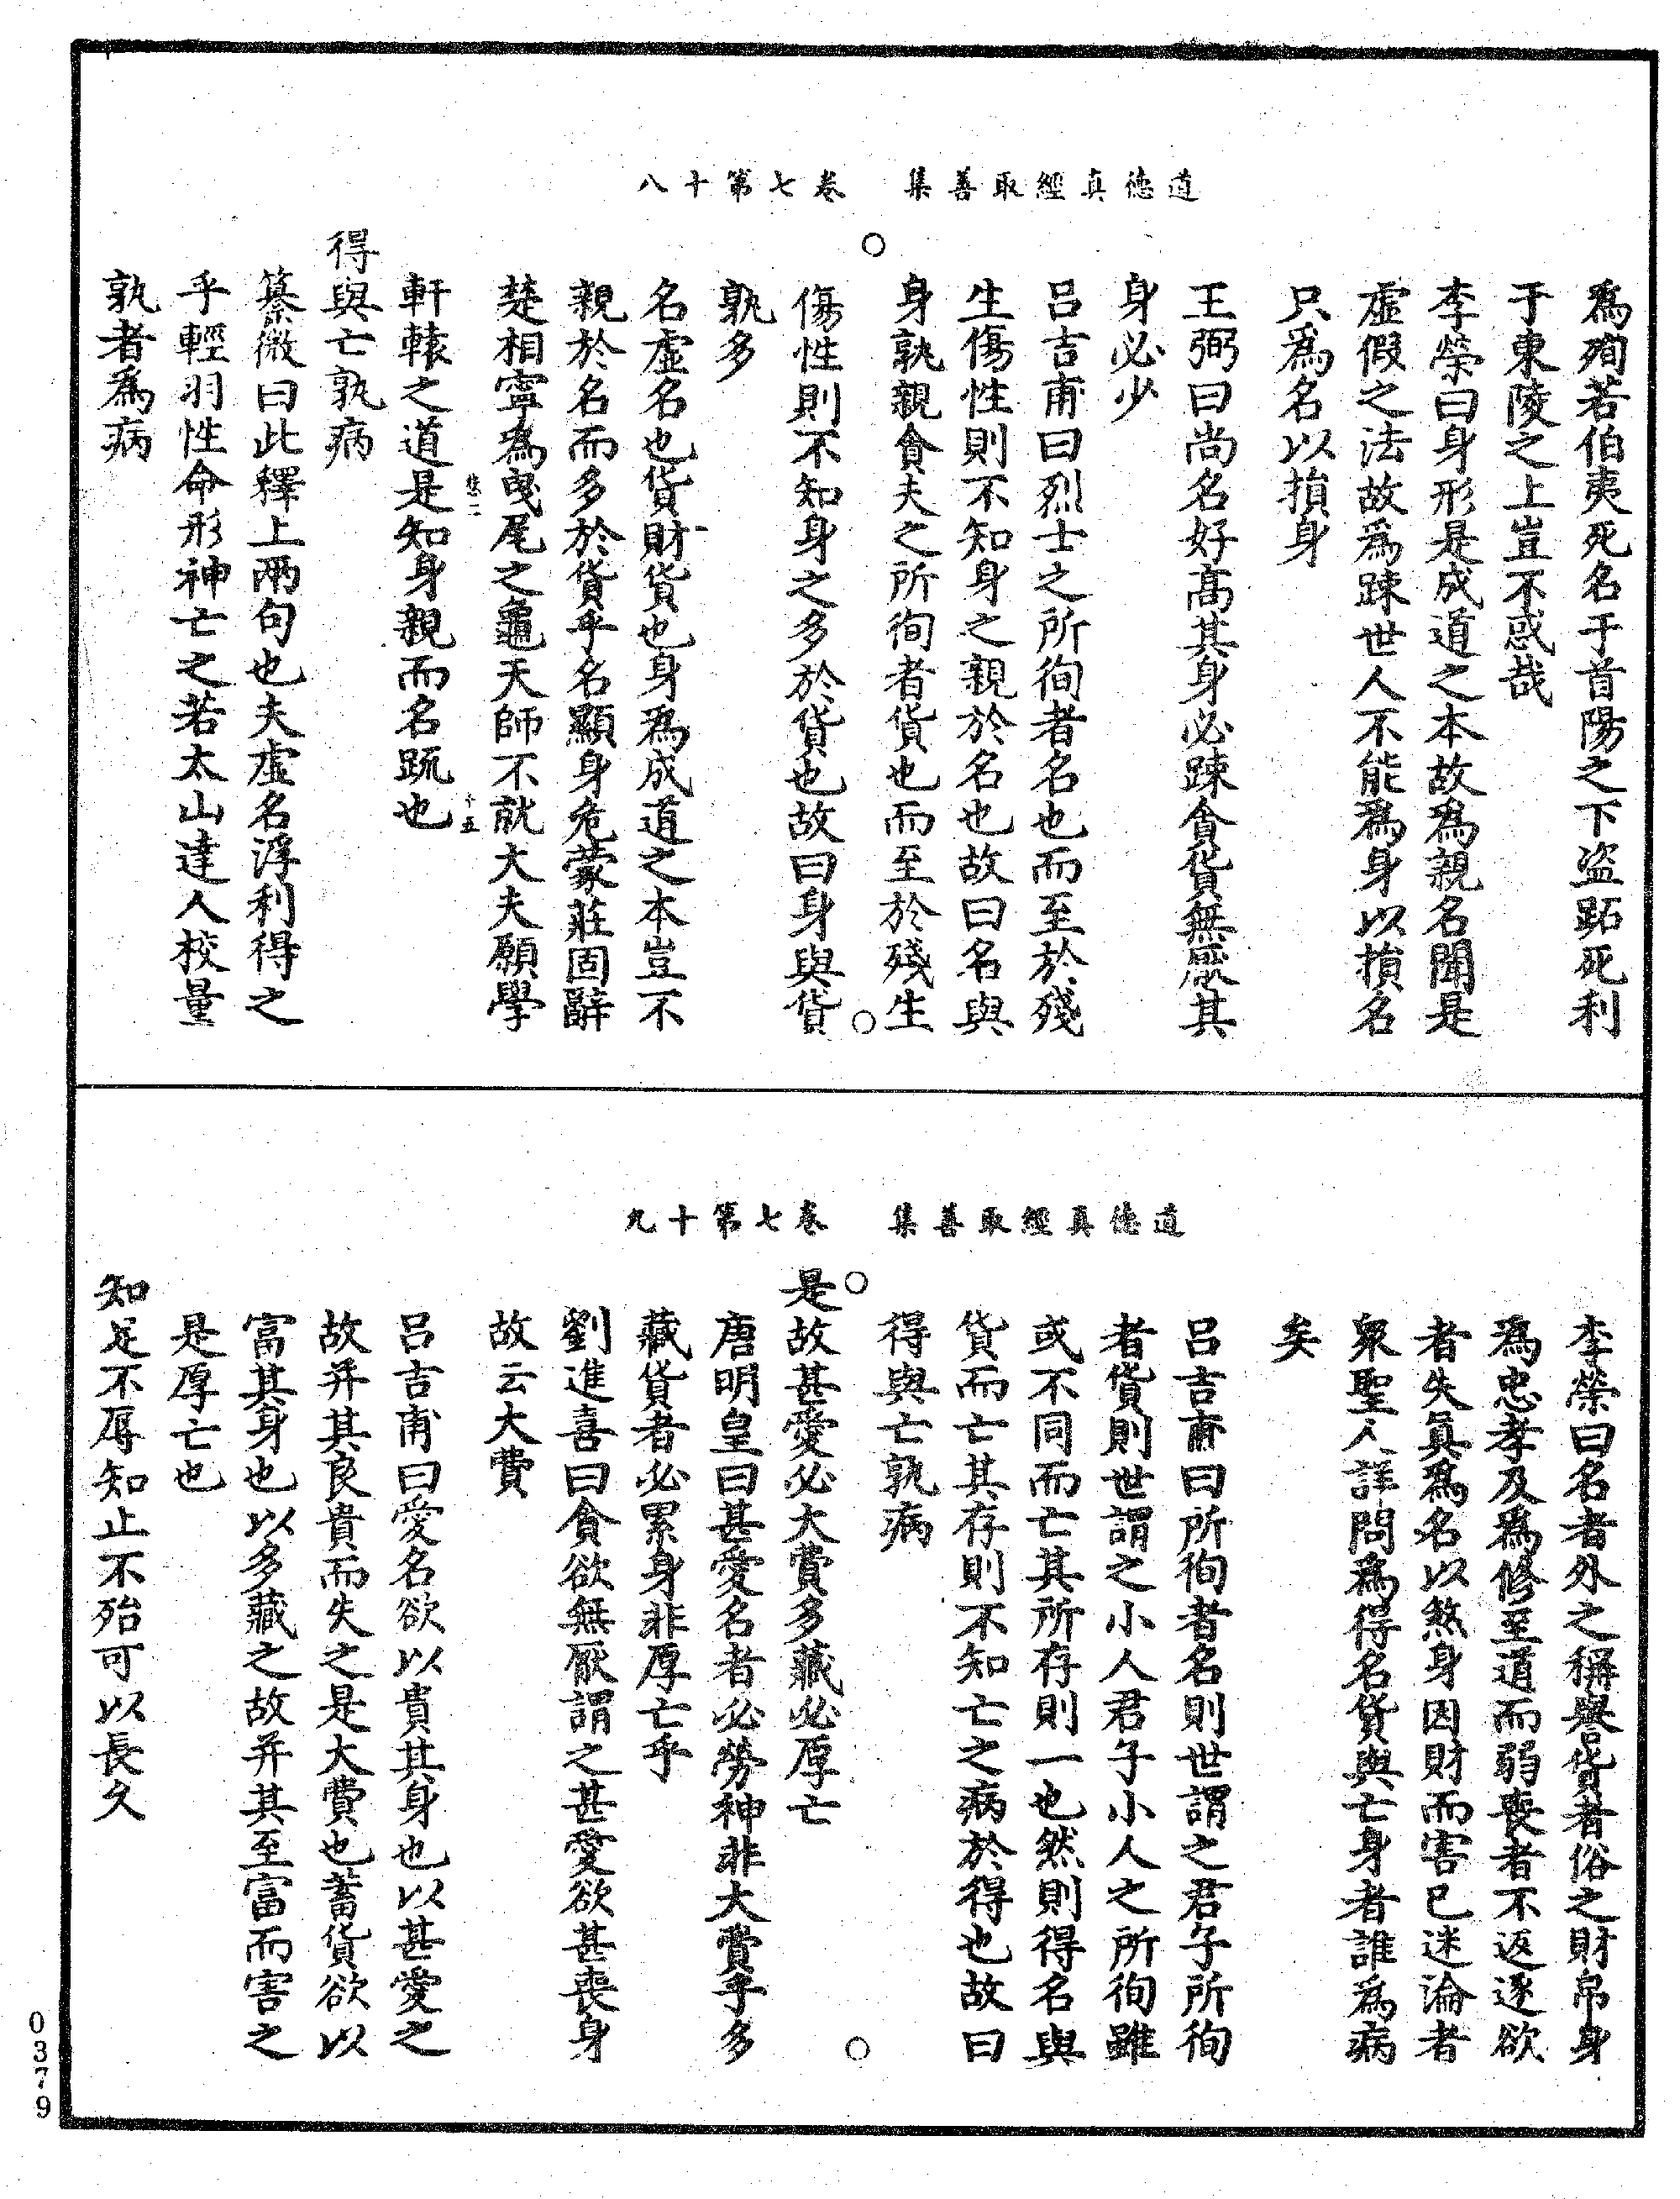 道德真經取善集　卷七第十八
為殉若伯夷死名于首陽之下盜跖死利
于東陵之上豈不惑哉
李榮曰身形是成道之本故為親名聞是
虛假之法故為踈世人不能為身以損名
只為名以損身
王弼曰尚名好高其身必踈貪貨無厭其
身必少
呂吉甫曰烈士之所徇者名也而至於殘
生傷性則不知身之親於名也故曰名與
身孰親貪夫之所徇者貨也而至於殘生
傷性則不知身之多於貨也故曰身與貨
孰多
名虛名也貨財貨也身為成道之本豈不
親於名而多於貨乎名顯身危蒙莊固辭
楚相寧為曳尾之龜天師不就大夫願學
軒轅之道是知身親而名踈也
十五
得與亡孰病
纂微曰此釋上兩句也夫虛名浮利得之
乎輕羽性命形神亡之若太山達人校量
孰者為病
道德真經取善集　卷七第十九
李榮曰名者外之稱譽貨者俗之財帛身
為忠孝及為修至道而弱喪者不返逐欲
者失真為名以煞身因財而害己迷淪者
眾聖人詳問為得名貨與亡身者誰為病
矣
呂吉甫曰所徇者名則世謂之君子所徇
者貨則世謂之小人君子小人之所徇雖
或不同而亡其所存則一也然則得名與
貨而亡其存則不知亡之病於得也故曰
得與亡孰病
是故甚愛必大費多藏必厚亡
唐明皇曰甚愛名者必勞神非大費乎多
藏貨者必累身非厚亡乎
劉進喜曰貪欲無厭謂之甚愛欲甚喪身
故云大費
呂吉甫曰愛名欲以貴其身也以甚愛之
故并其良貴而失之是大費也蓄貨欲以
富其身也以多藏之故并其至富而害之
是厚亡也
知足不辱知止不殆可以長久
0379